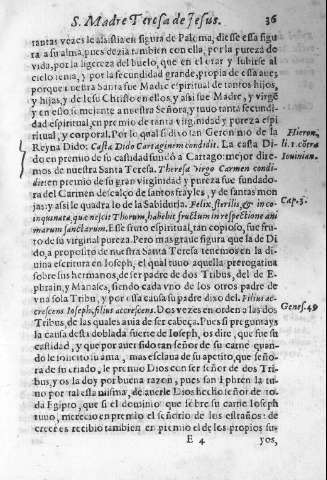 S. Madre Teresa de Jesus. 36
tantas vezes le assistia en figura de Paloma, diesse essa figu
ra a su alma, pues dezia tambien con ella, por la pureza de
vida, por la ligereza del buelo, que en el orar y subirse al
cielo tenia, y por la fecundidad grande, propia de essa aue;
porque nuestra Santa fue Madre espiritual de tantos hijos,
y hijas, y de Iesu Christo en ellos, y assi fue Madre, y virgẽ
y en esso semejante a nuestra Señora, y tuuo tanta fecundi-
dad espiritual, en premio de tanta virginidad y pureza espi
ritual, y corporal. Por lo qual si dixo san Geronimo de la
Reyna Dido: Casta Dido Cartaginem condidit. La casta Di
do en premio de su castidad fundó a Cartago: mejor dire-
mos de nuestra Santa Teresa. Theresa virgo Carmen condi-
dit: en premio de su gran virginidad y pureza fue fundado-
ra del Carmen descalço de tantos frayles, y de santas mon
jas: y assi le quadra lo de la Sabiduria. Felix, sterilis, & in-
coinquinata, que nesciuit Thorum, habebit fructum in respectione ani
marum sanctarum. Esse fruto espiritual, tan copioso, fue fru-
to de su virginal pureza. Pero mas graue figura que la de Di
do, a proposito de nuestra Santa Teresa tenemos en la di-
uina escritura en Ioseph, el qual tuuo aquella prerrogatiua
sobre sus hermanos, de ser padre de dos Tribus, del de E-
phrain, y Manasses, siendo cada vno de los otros padre de
vna sola Tribu, y por essa causa su padre dixo del. Filius ac-
crescens Ioseph, filius accrescens. Dos vezes en orden a las dos
Tribus, de las quales auia de ser cabeça. Pues si preguntays
la causa desta doblada suerte de Ioseph, os dire, que fue su
castidad, y que por auer sido tan señor de su carne quan-
do le solicito su ama, mas esclaua de su apetito, que seño-
ra de su criado, le premio Dios con ser señor de dos Tri-
bus, y os la doy por buena razon, pues san Ephren la tu-
uo por tal essa misma, de auerle Dios hecho señor de to-
da Egipto, que si el dominio que sobre su carne Ioseph
tuuo, merecio en premio el señorio de los estraños: de
creer es recibio tambien en premio el de los propios su-
E 4 yos,
Hieron.
li. 1. cõtra
Iouinian.
Cap. 3.
Genes. 49